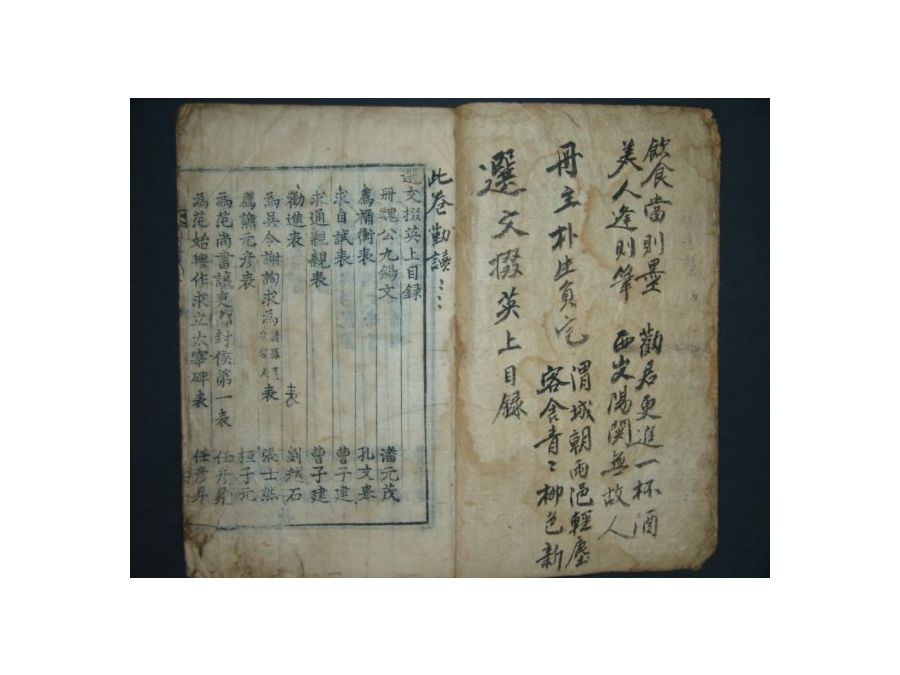 飲食當則墨
美人逢則筆
勸君更進一杯酒
西出陽関無故人
冊主朴生員宅
渭城朝雨浥輕塵
客舍青〻柳色新
選文掇英上目録
此卷勤讀〻〻
選文掇英上目録
冊魏公九錫文 潘元茂
薦禰衡表 孔文擧
求自試表 曹子建
求通親親表 曹子建
勸進表 劉越石
為吳令謝詢求為諸孫置守冢人表 張士然
薦譙元彦表 桓子元
為范尚書讓吏部封侯第一表 任彦昇
為范始興作求立太宰碑表 任彦昇